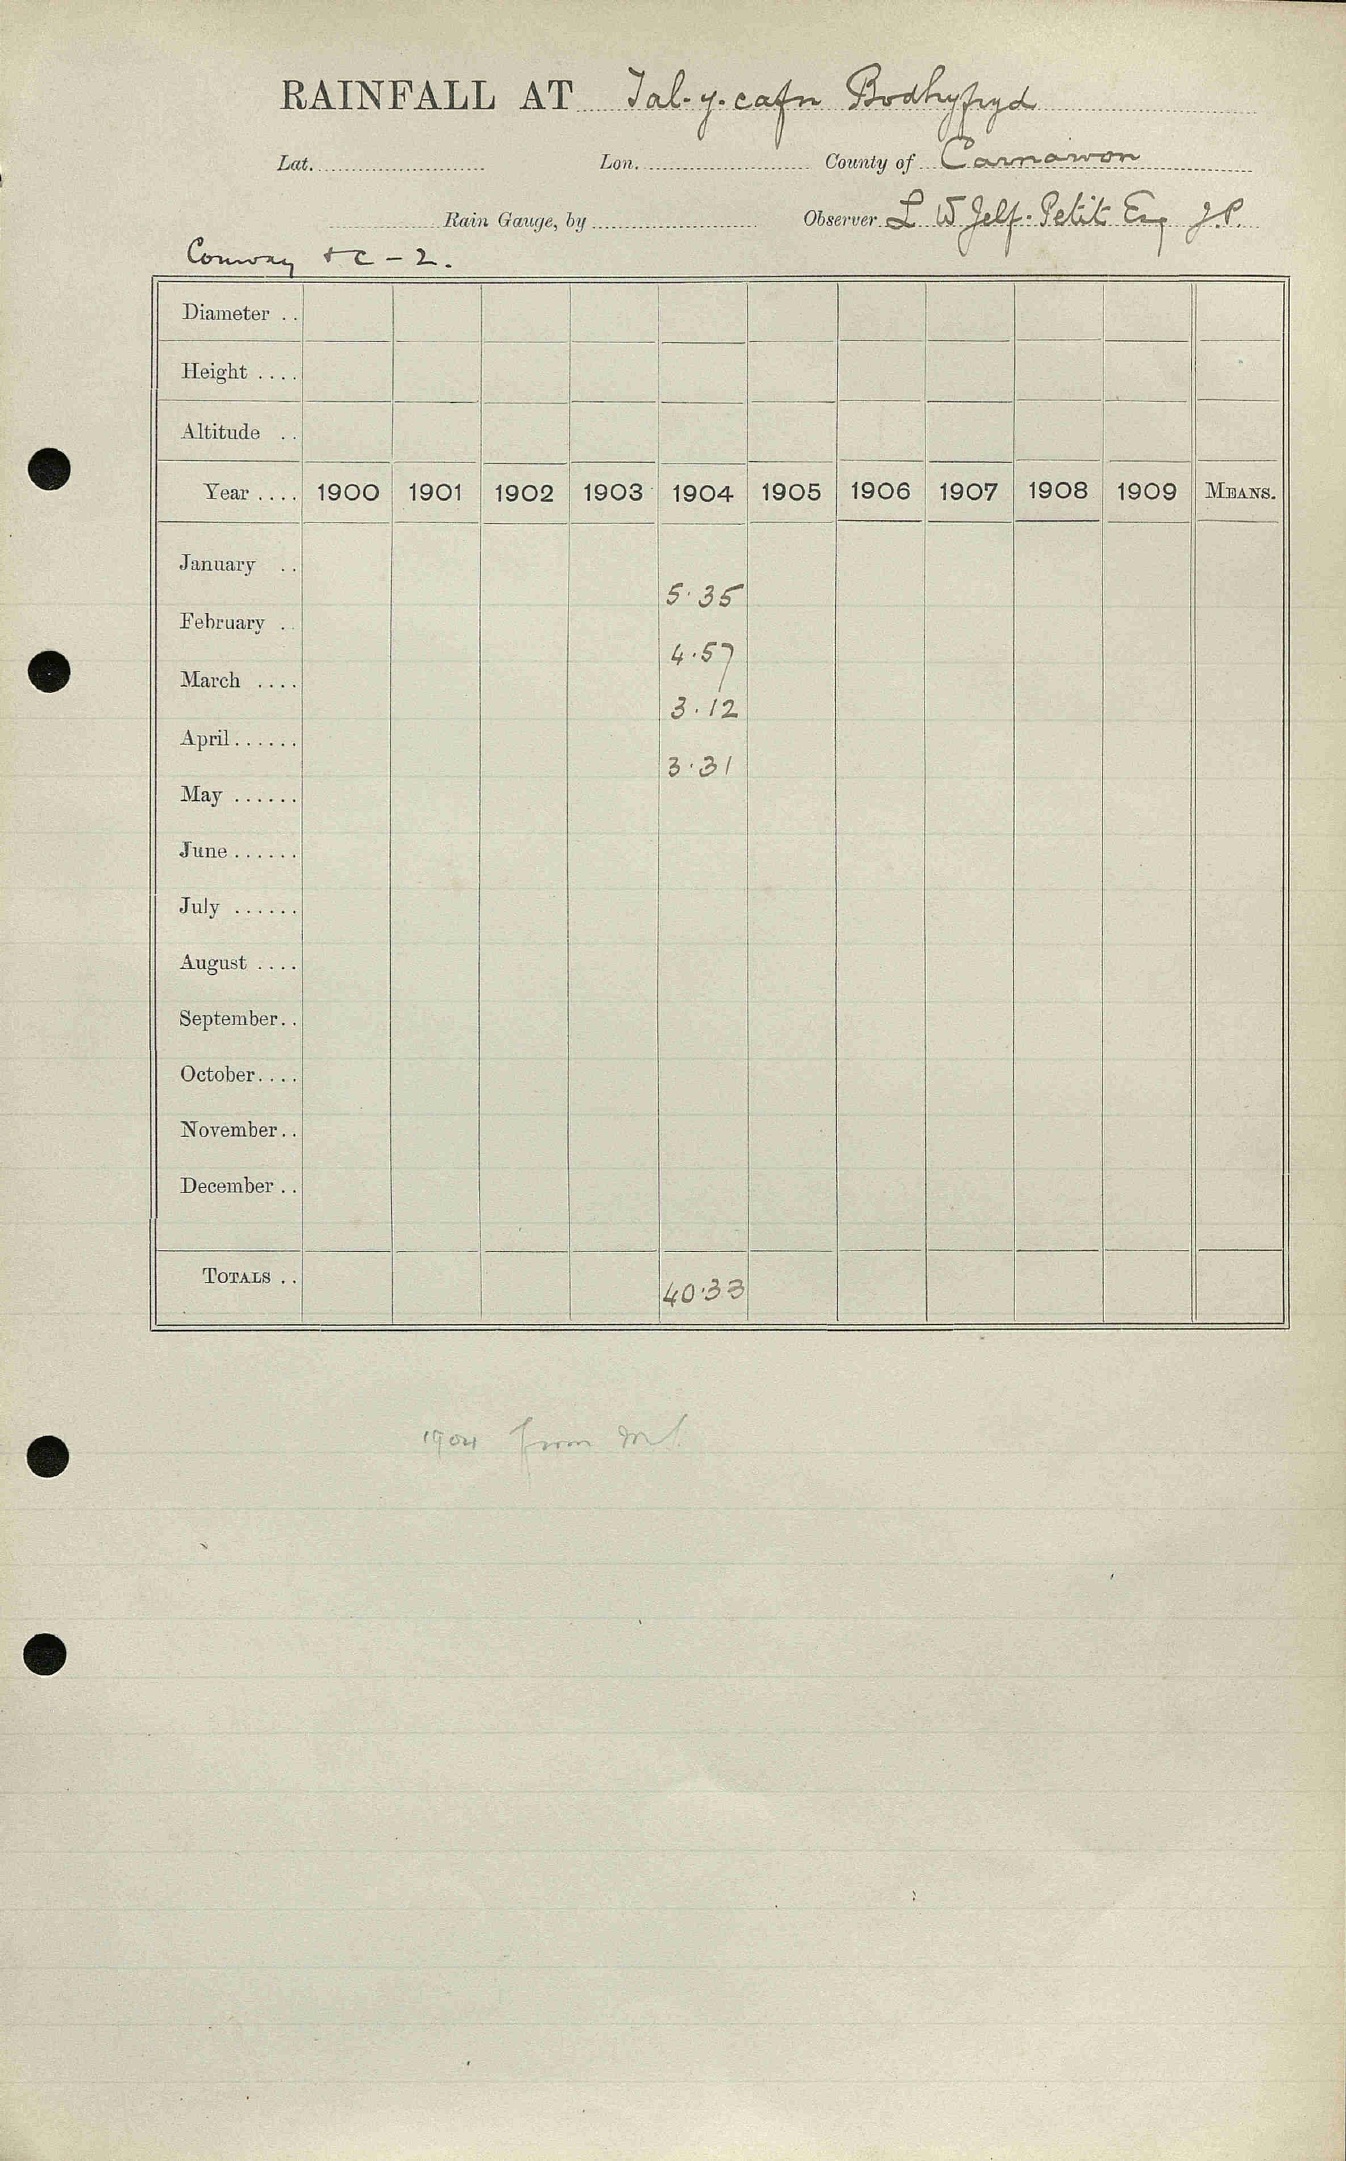 RAINFALL AT Tal-y-cafn Bodhyfryd
Lat. Lon. County of Carnarvon
Rain Gauge, by Observer L W Jelf-Petit Esq J.P.
Conway + C - 2.
Diameter ..
Height ....
Altitude ..
Year .... 1900 1901 1902 1903 1904 1905 1906 1907 1908 1909 MEANS.
January ..
5.35
February ..
4.57
March ....
3.12
April......
3.31
May ......
June......
July ......
August ....
September..
October....
November..
December ..
TOTALS .. 40.33
1904 from MS.